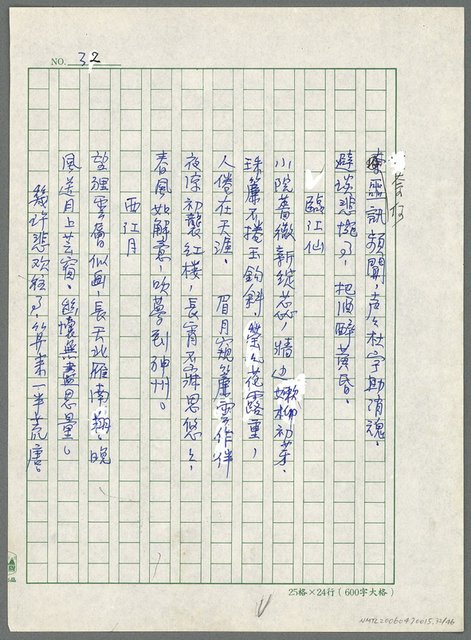 NO. 32
芸窗
訊頻聞，声々杜宇助消魂。
避災悲惋了，把酒醉黃昏。
臨江仙
小院薔薇新綻蕊，牆边嫩柳初芽。
珠簾不捲玉鈎斜，瑩々花露重，
人倦在天涯。 眉月窺簾雲作伴
夜深初襲紅樓，長宵不寐思悠々，
春風如解意，吹夢到神州。
西江月
望裡雲層似画，長天北雁南翔，晚
風送月上芸窗。幽懷無盡思量。
幾許悲欢往了，算来一半荒唐。
25格×24行（600字大格）
NMTL20060470015.32/46